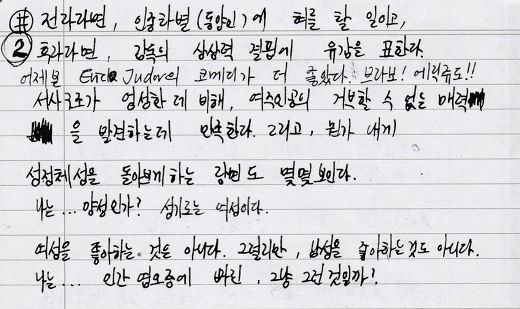 # 전라라면, 인종차별(동양인)에 혀를 찰 일이고,
② 후라라면, 감독의 상상력 결핍에 유감을 표한다.
어제본 Judor의 코메디가 더 좋았다. 브라보! 에릭쥬도!!
서사구조가 엉성한데 비해, 여주인공의 거부할 수 없는 매력
을 발견하는데 만족한다. 그리고, 뭔가 내게
성정체성을 돌아보게하는 장면도 몇몇보인다.
나는... 양성인가? 성기로는 여성이다.
여성을 좋아하는 것은 아니다. 그렇지만, 남성을 좋아하는것도 아니다.
나는... 인간 혐오증에 빠진, 그냥 그런 것일까?